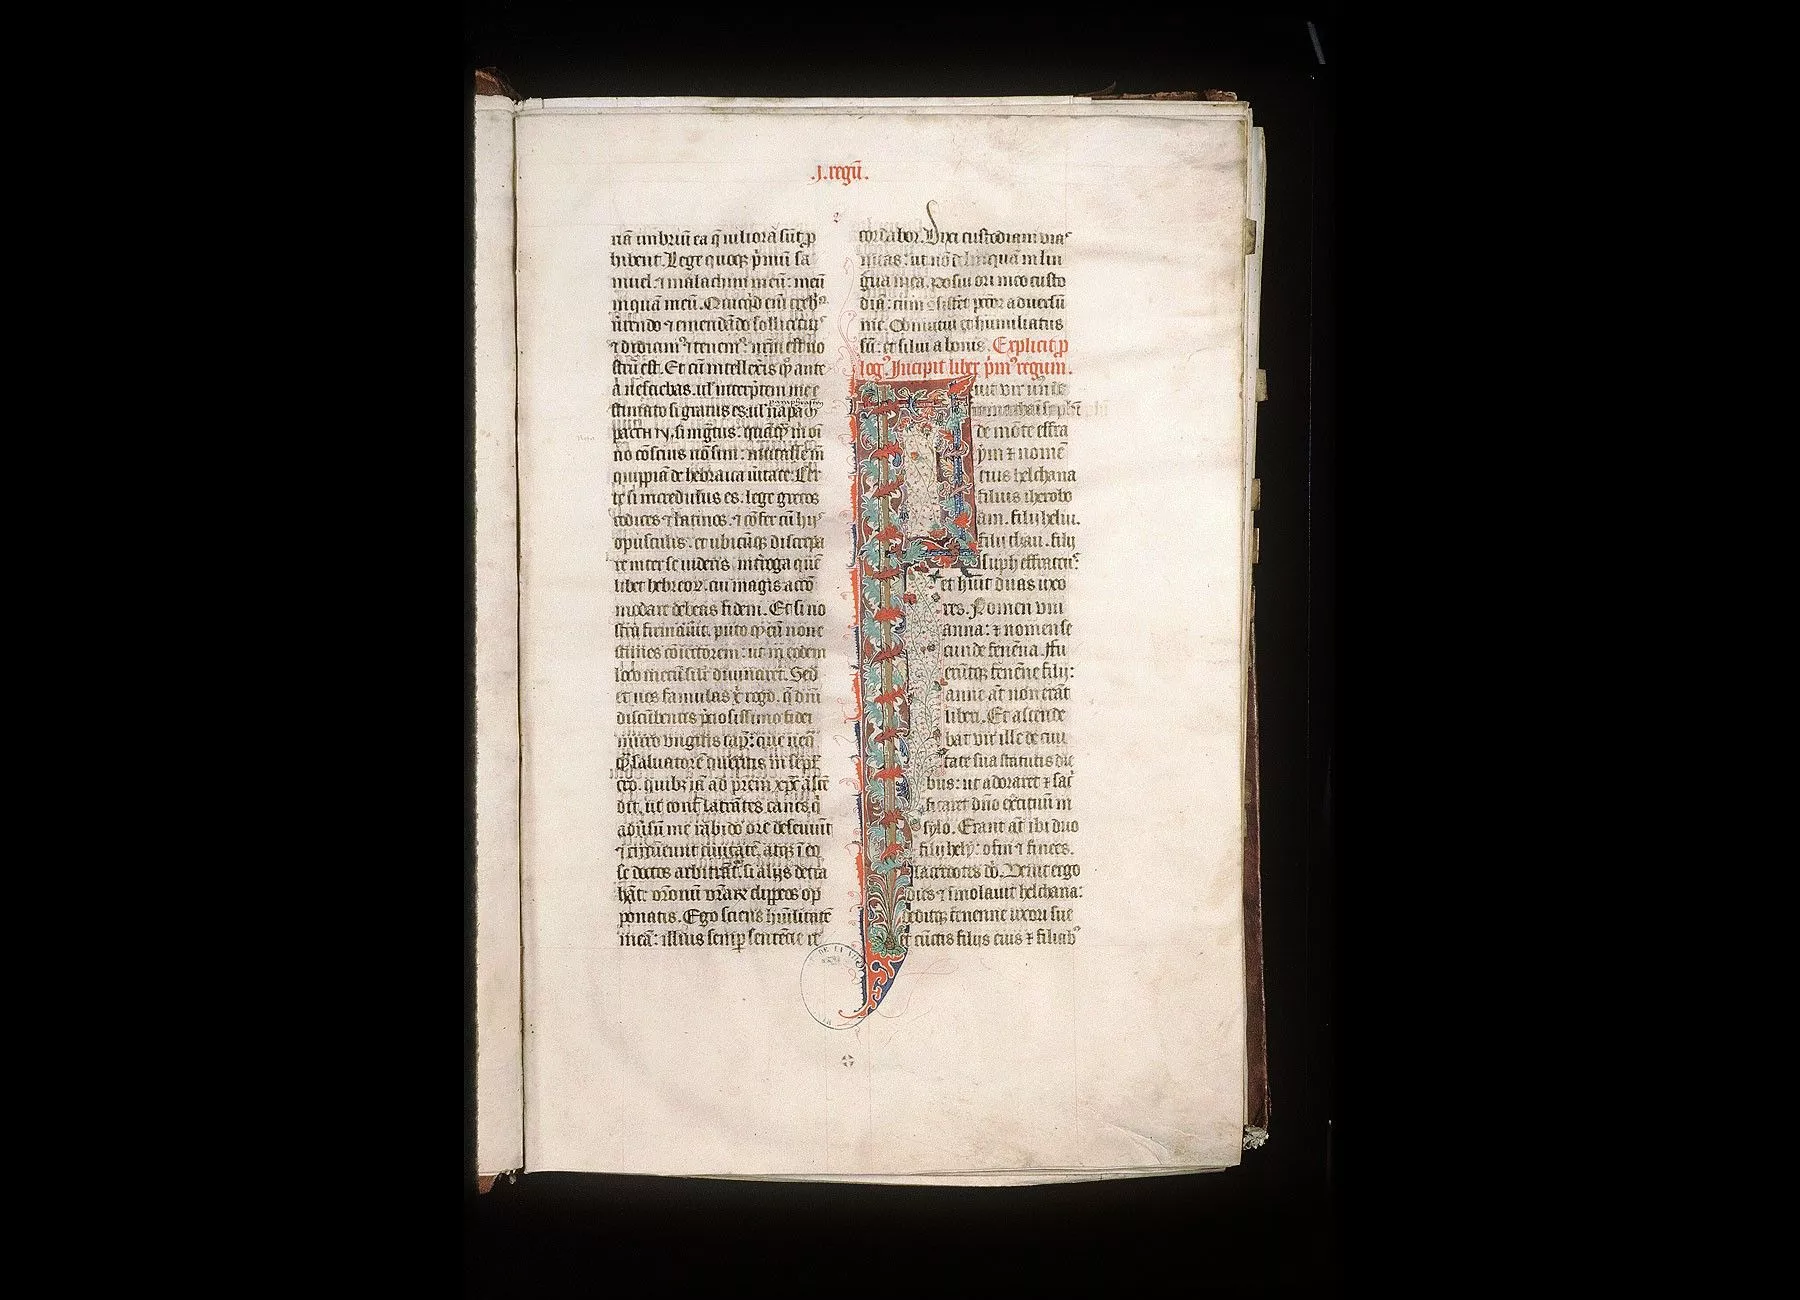 .j. regū.
riā imbriū ea q̄ viliora sūt ꝓ
hibent. Lege quoqꝫ p̄mū sa
muel. ⁊ malachim meū: meū
inquā meū. Quicqͥd em̄ creb̾
v̾tendo ⁊ emendādo sollicitiꝰ
⁊ didicimꝰ ⁊ tenemꝰ: nr̄m est no
strū est. Et cū intellexis qͥ ante
a nesciebas. vl̾ interp̄tem me e
stimato si gratus es: vl̾
si ingͣtus.
no cōscius nō sim: mutasse m̄
quippiā de hebraica v̾itate. Cer
te si incredulus es. lege grecos
codices ⁊ latinos. ⁊ cōfer cū hijs
opusculis. et ubicūqꝫ discrepa
re inter se videris. int̾roga quē
libet hebreoꝝ. cui magis acco
modare debeas fidem. Et si no
stra firmav̾it. puto qͥ eū non e
stimes coniectorem: ut in eodem
loco mecū sil̾r divinaret. Sed
et vos famulas xͥ rogo. q̄ dn̄i
discūbentis p̄ciosissimo fidei
mirro vngitis capᷣ: que neqͣ
qͣ salvatorē queritis in sepl̾
cro. quibꝫ iā ad prēm xp̄c ascē
dit. ut cont̾ latrātes canes. q̄
adv̾sū me rabido ore deseviunt
⁊ circueunt civitatē. atqꝫ ī eo
se doctos arbitrāt̾. si alijs detra
hāt: oronū vr̄aꝝ clippeos op
ponatis. Ego sciens hūilitatē
meā: illius semꝑ sentēcie re
cordabor. Dixi custodiam vias
meas: ut nō delinquā in lin
gua mea. Posui ori meo custo
diā: cum ꝯsistet pccōr adversū
me. Obmutui et humiliatus
sū: et silui a bonis. Explicit ꝓ
logꝰ. Incipit liber p̄mꝰ regum.
Fuit vir unꝰ de
de mōte effra
ym ⁊ nomē
eius helchana
filius iherobo
am. filij heliu.
filij thau. filij
suph effrateus:
et habuit duas uxo
res. Nomen uni
anna: ⁊ nomen se
cunde fenēna. Fu
erūtqꝫ fenēne filij:
anne aūt non erāt
liberi. Et ascende
bat vir ille de civi
tate sua statutis die
bus: ut adoraret ⁊ sac̾
ficaret dn̄o exercituū in
sylo. Erant aūt ibi duo
filij hely: ofni ⁊ finees.
sacerdotes dn̄i. Venit ergo
dies ⁊ imolavit helchana:
deditqꝫ fenenne uxori sue
et cūctis filijs eius ⁊ filiabꝰ